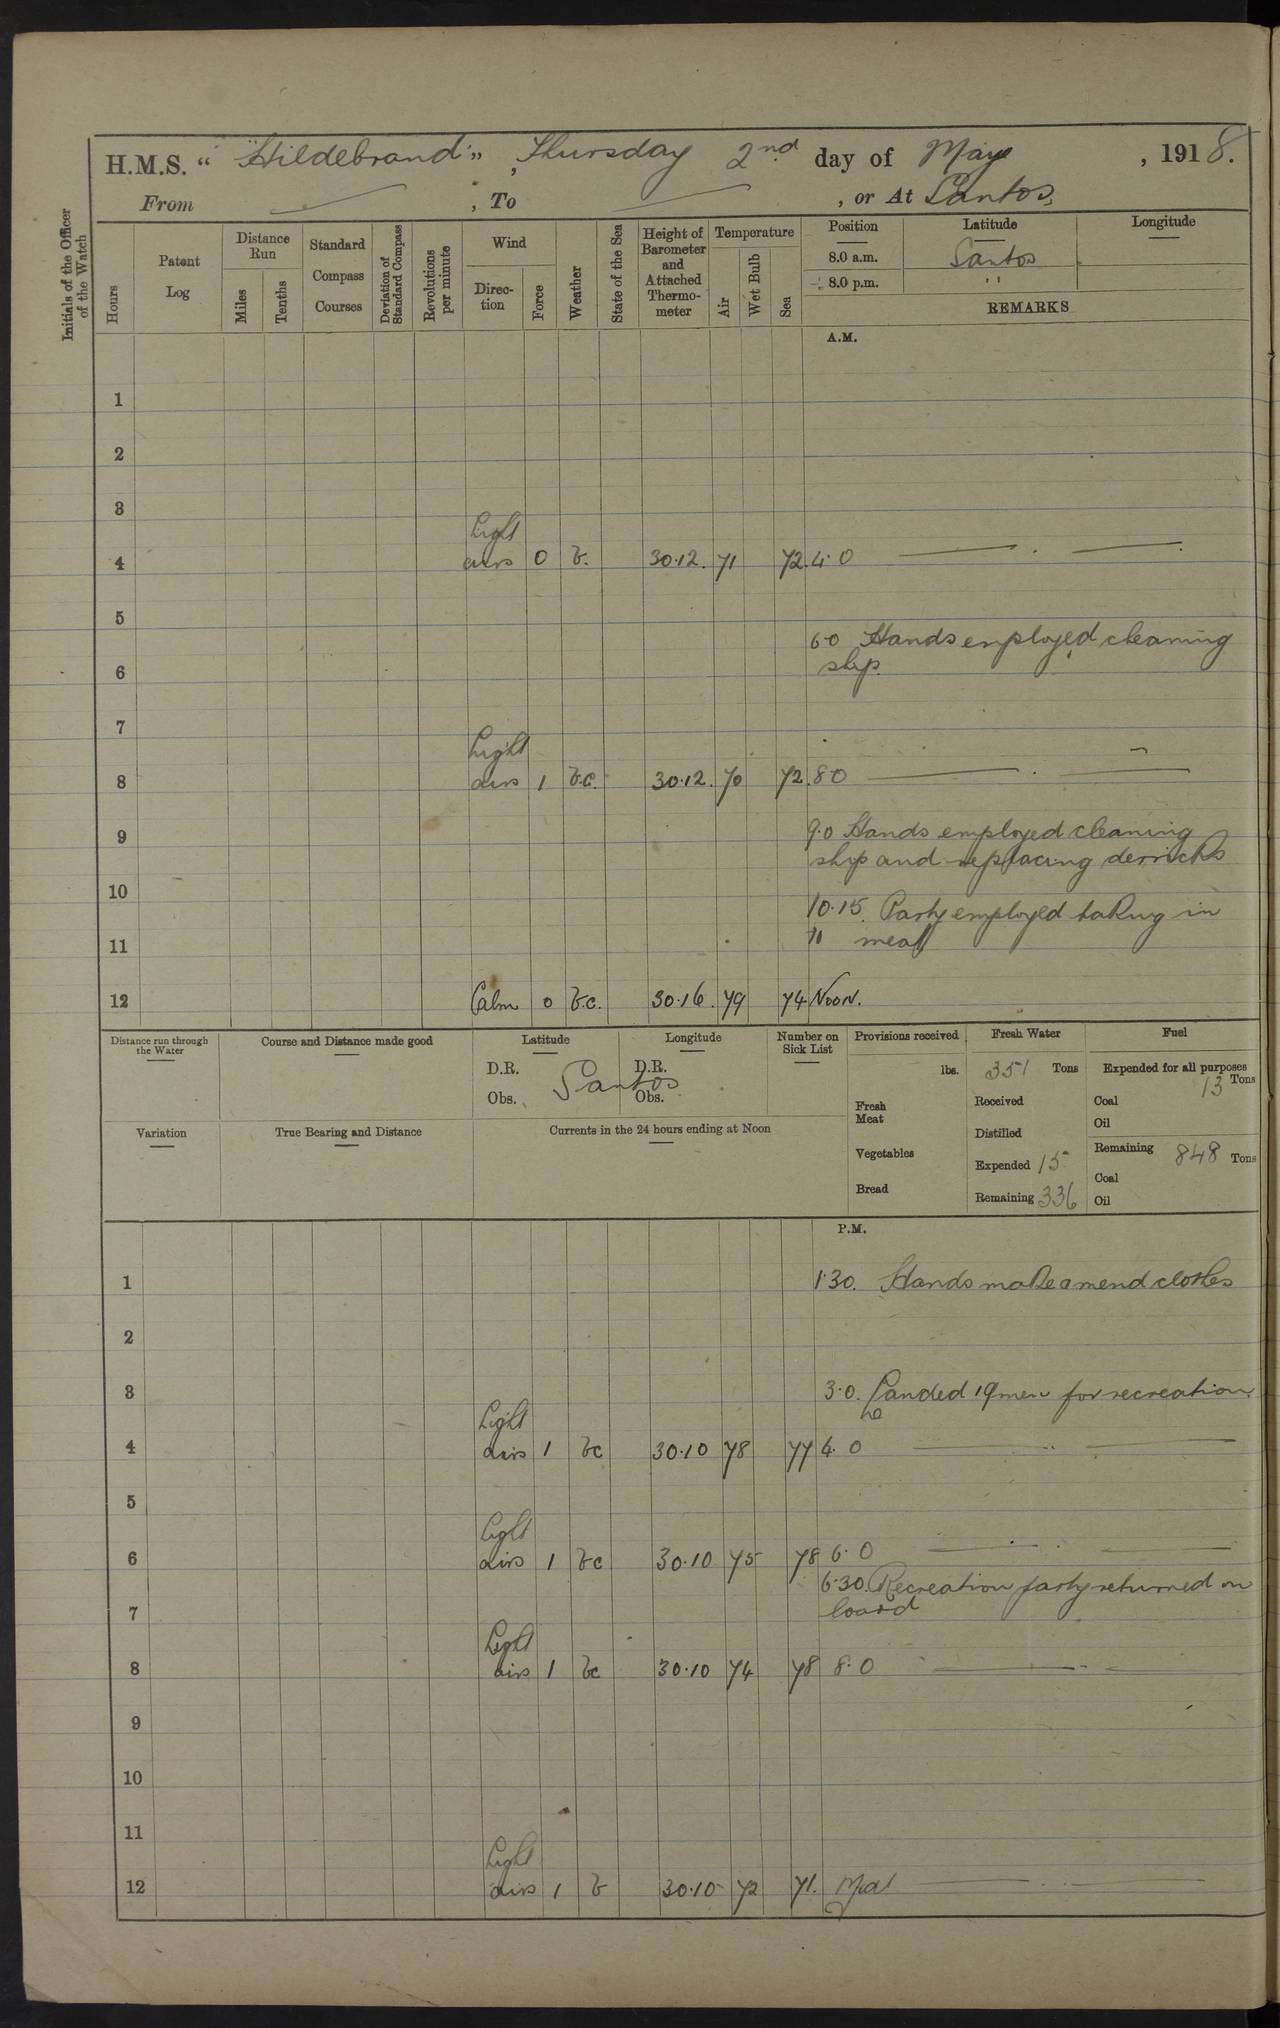 H.M.S. "Hildebrand", Thursday 2nd day of May, 1918.
From , To , or At Santos.
Initials of the Officer of the Watch
Hours
Patent Log
Distance Run
Miles
Tenths
Standard Compass Courses
Deviation of Standard Compass
Revolutions per minute
Wind
Direction
Force
Weather
State of the Sea
Height of Barometer and Attached Thermometer
Temperature
Air
Wet Bulb
Sea
Position Latitude Longitude
8.0 a.m. Santos
8.0 p.m. "
REMARKS
A.M.
1
2
3
Light
4 airs 0 b. 30.12. 71 72. 4.0
5
6.0 Hands employed cleaning
6 ship.
7
Light
8 airs 1 b.c. 30.12. 70 72. 8.0
9 9.0 Hands employed cleaning
ship and replacing derricks
10
10.15. Party employed taking in
11 " meat
12 Calm 0 b.c. 30.16. 79 74 Noon.
Distance run through the Water
Course and Distance made good
Latitude
D.R.
Obs.
Santos
Longitude
D.R.
Obs.
Number on Sick List
Provisions received
lbs.
Fresh Meat
Vegetables
Bread
Fresh Water
351 Tons
Received
Distilled
Expended 15
Remaining 336
Fuel
Expended for all purposes
13 Tons
Coal
Oil
Remaining 848 Tons
Coal
Oil
Variation
True Bearing and Distance
Currents in the 24 hours ending at Noon
P.M.
1 1.30. Hands make & mend clothes
2
3 3.0. Landed 19 men for recreation
Light
4 airs 1 bc 30.10 78 77 4.0
5
Light
6 airs 1 bc 30.10 75 78 6.0
6.30. Recreation party returned on
7 board
Light
8 airs 1 bc 30.10 74 78 8.0
9
10
11
Light
12 airs 1 b 30.10 72 71. Mid